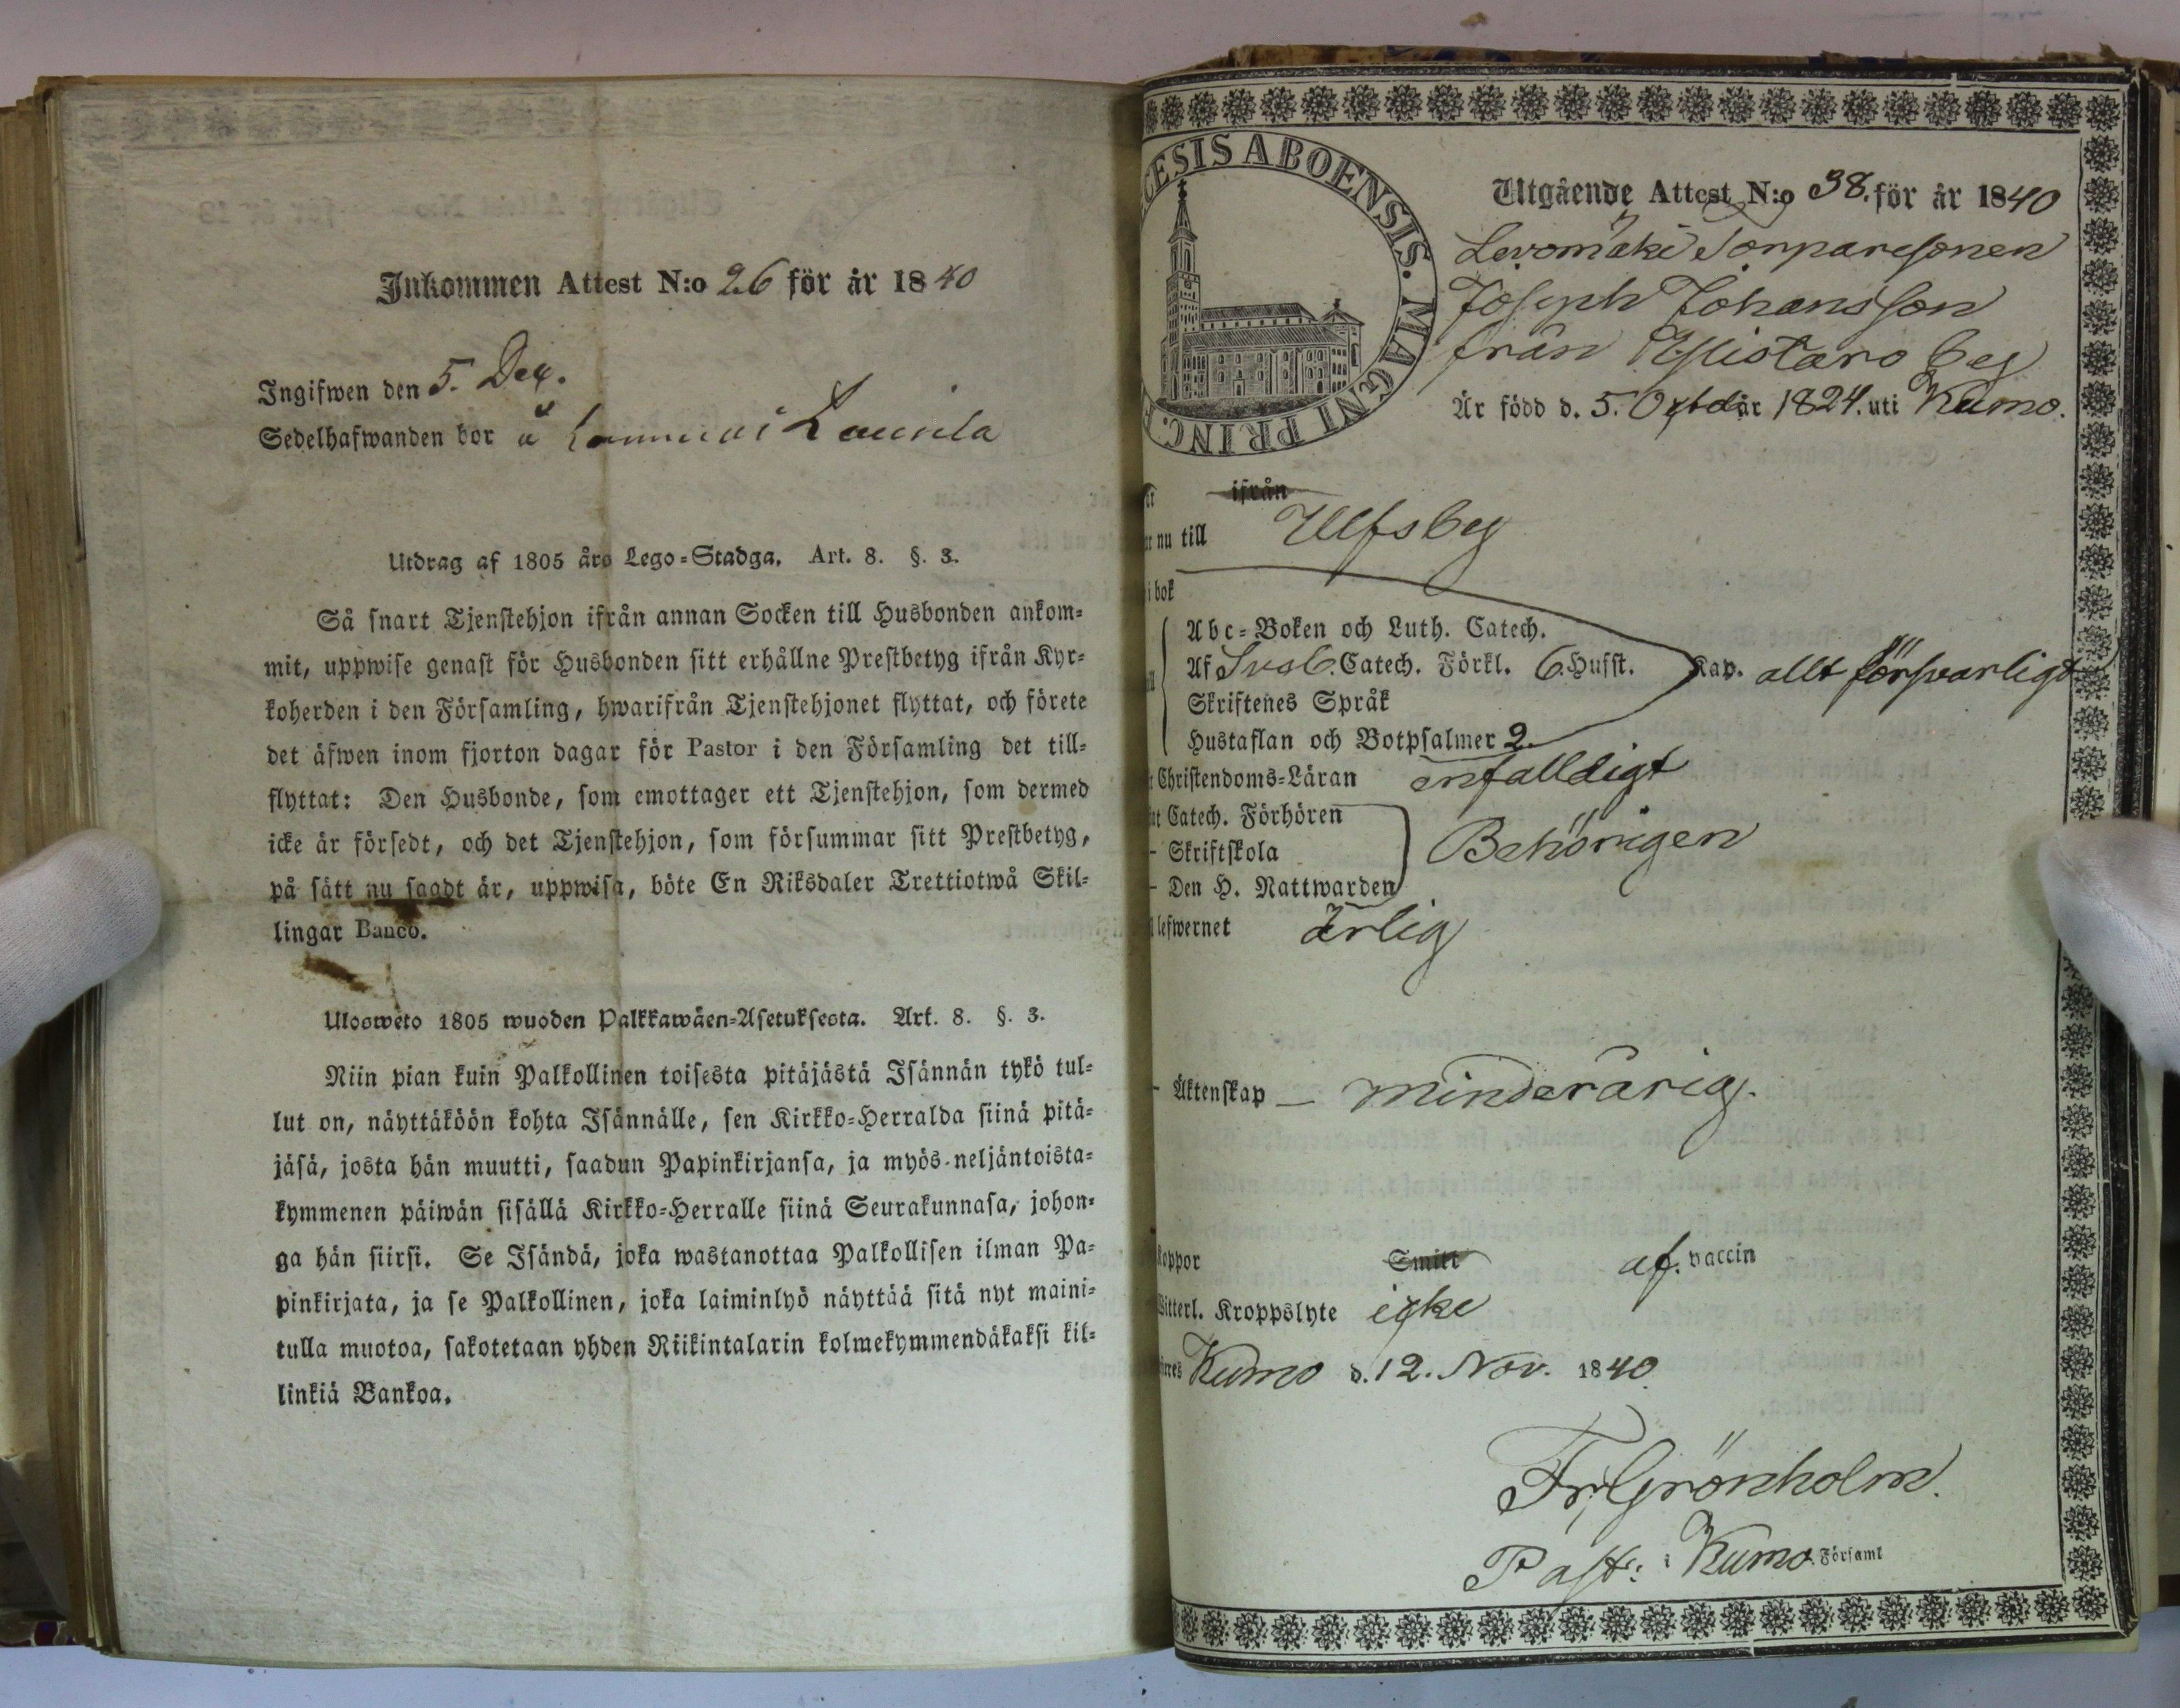 Inkommen Attest N:o 26 för år 1840
Ingifwen den 5. Dec.
Sedelhafwanden bor å Laurila
Utdrag af 1805 års Lego-Stadga. Art. 8. §. 3.
Så snart Tjenstehjon ifrån annan Socken till Husbonden ankom-
mit, uppwise genast för Husbonden sitt erhållne Prestbetyg ifrån Kyr-
koherden i den Församling, hwarifrån Tjenstehjonet flyttat, och förete
det äfwen inom fjorton dagar för Pastor i den Församling det till-
flyttat: Den Husbonde, som emottager ett Tjenstehjon, som dermed
icke är försedt, och det Tjenstehjon, som försummar sitt Prestbetyg,
på sätt nu sagdt är, uppwisa, böte En Riksdaler Trettiotwå Skil-
lingar Banco.
Ulosweto 1805 wuoden Palkkawäen-Asetuksesta. Art. 8. §. 3.
Niin pian kuin Palkollinen toisesta pitäjästä Isännän tykö tul-
lut on, näyttäköön kohta Isännälle, sen Kirkko-Herralda siinä pitä-
jäsä, josta hän muutti, saadun Papinkirjansa, ja myös neljäntoista-
kymmenen päiwän sisällä Kirkko-Herralle siinä Seurakunnasa, johon-
ga hän siirsi. Se Isändä, joka wastanottaa Palkollisen ilman Pa-
pinkirjata, ja se Palkollinen, joka laiminlyö näyttää sitä nyt maini-
tulla muotoa, sakotetaan yhden Riikintalarin kolmekymmendäkaksi kil-
linkiä Bankoa.
CESIS ABOENSIS. MAGNI PRINC.
Utgående Attest N:o 38. för år 1840
Levomäki Torparesonen
Joseph Johansson
från Yllistaro by
Är född d. 5. Octob. år 1824. uti Kumo.
ifrån
nu till Ulfsby
i bok
Abc-Boken och Luth. Catech.
Af Sveb. Catech. Förkl. 6. Husst. Kap. allt försvarligt
Skriftenes Språk
Hustaflan och Botpsalmer 2.
Christendoms-Läran enfalldigt
Catech. Förhören
- Skriftskola Behörigen
- Den H. Nattwarden
lefwernet ärlig
- Äktenskap - minderårig.
koppor Smitt af. vaccin
Witterl. Kroppslyte icke
Kumo d. 12. Nov. 1840
Fr. Grönholm.
Past: i Kumo Församl